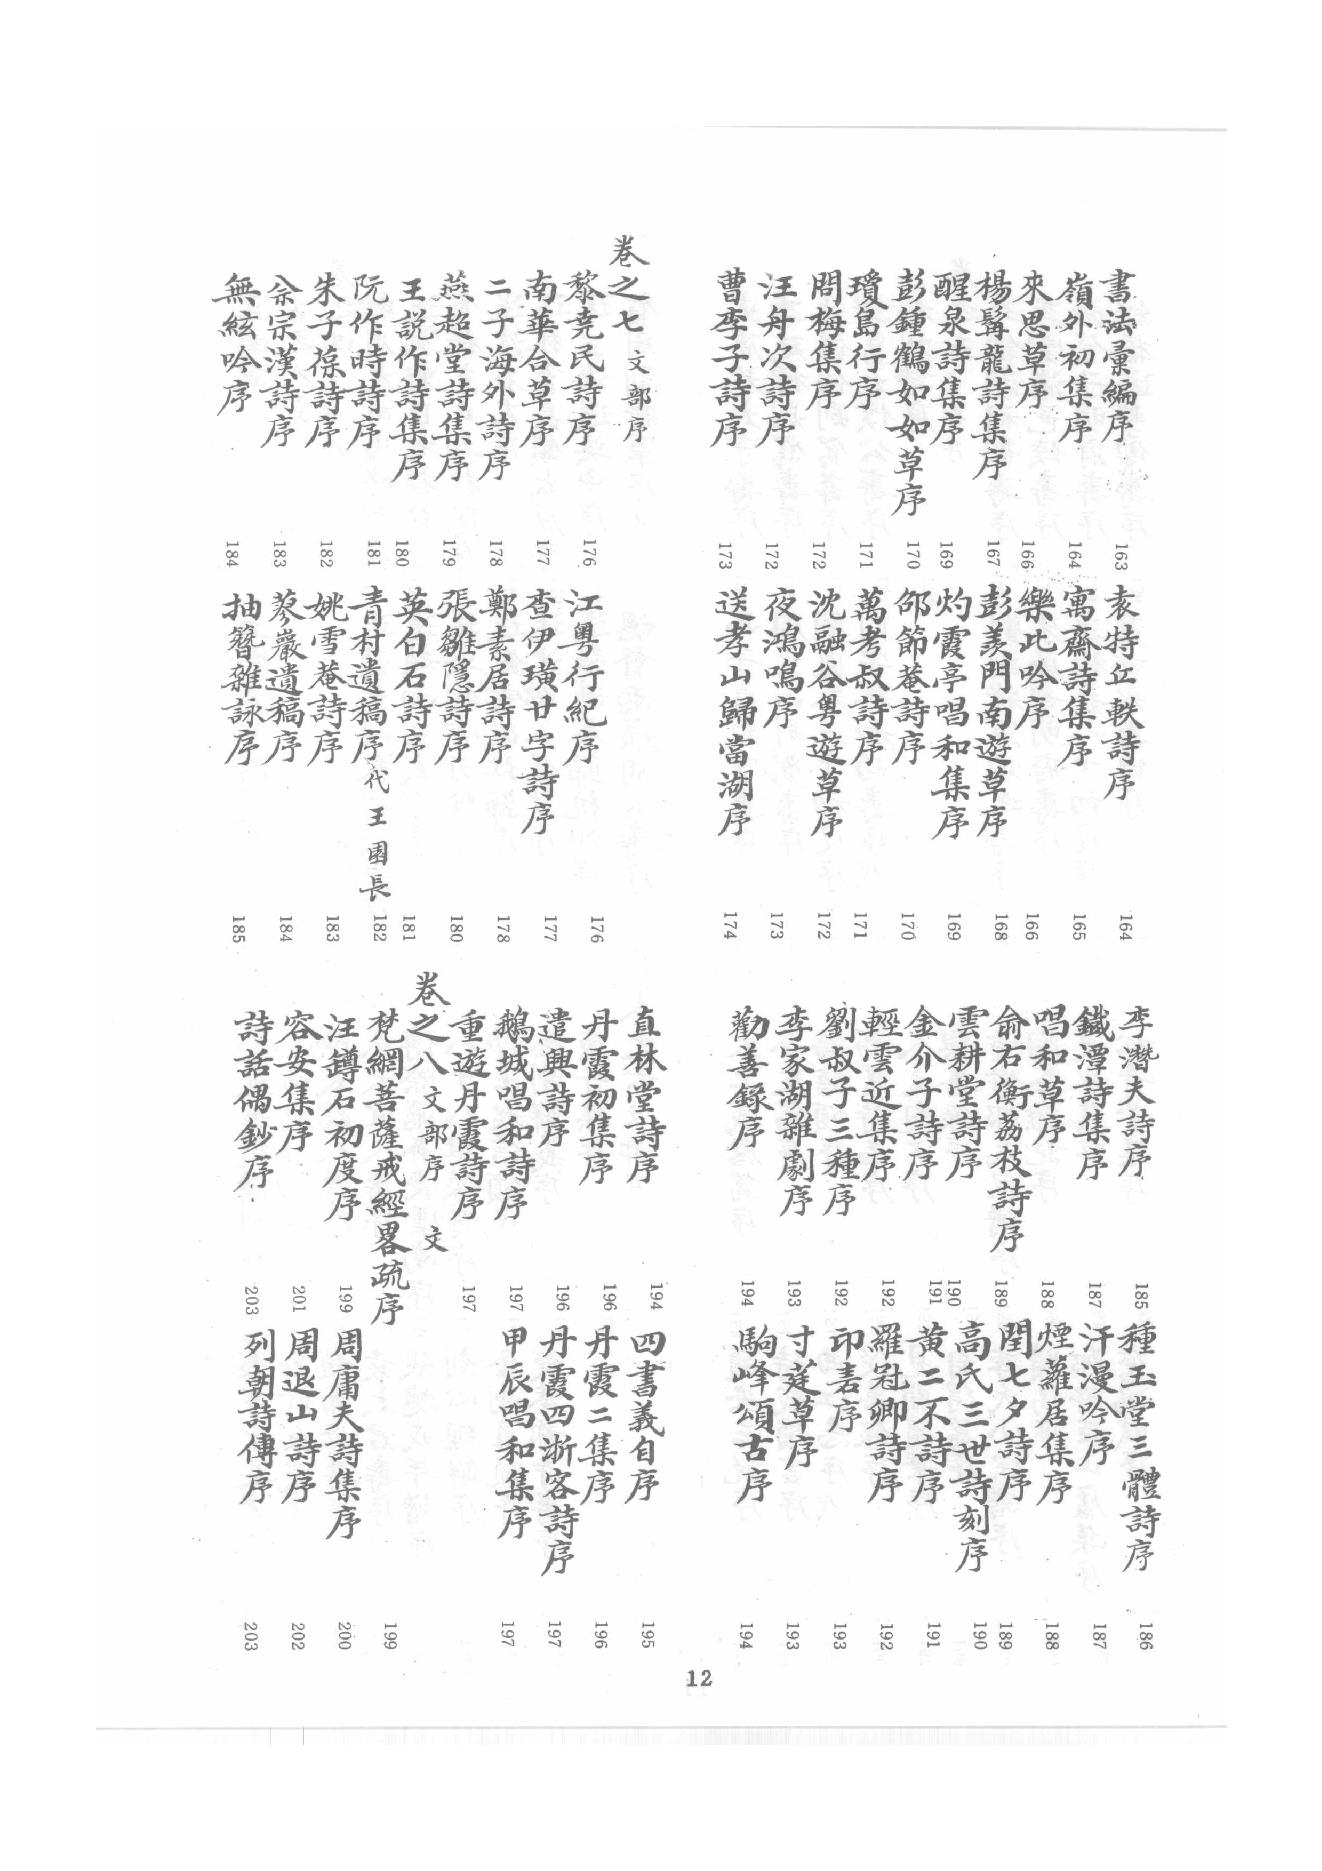 書法彙編序 163 袁特丘軼詩序 164
嶺外初集序 164 寓齋詩集序 165
來思草序 166 樂此吟序 166
楊髯龍詩集序 167 彭羨門南遊草序 168
醒泉詩集序 169 灼霞亭唱和集序 169
彭鍾鶴如如草序 170 邵節菴詩序 170
瓊島行序 171 萬考叔詩序 171
問梅集序 172 沈融谷粵遊草序 172
汪舟次詩序 172 夜鴻鳴序 173
曹季子詩序 173 送孝山歸當湖序 174
卷之七 文部序
黎堯民詩序 176 江粵行紀序 176
南華合草序 177 查伊璜廿字詩序 177
二子海外詩序 178 鄭素居詩序 178
燕超堂詩集序 179 張雛隱詩序 180
王説作詩集序 180 英白石詩序 181
阮作時詩序 181 青村遺稿序代王園長 182
朱子葆詩序 182 姚雪菴詩序 183
佘宗漢詩序 183 蓼巖遺稿序 184
無絃吟序 184 抽簪雜詠序 185
李潛夫詩序 185 種玉堂三體詩序 186
鐵潭詩集序 187 汗漫吟序 187
唱和草序 188 煙蘿居集序 188
俞右衡荔枝詩序 189 閏七夕詩序 189
雲耕堂詩序 190 高氏三世詩刻序 190
金介子詩序 191 黃二不詩序 191
輕雲近集序 192 羅冠卿詩序 192
劉叔子三種序 192 印嘉序 193
李家湖雜劇序 193 寸莛草序 193
勸善錄序 194 駒峰頌古序 194
直林堂詩序 194 四書義自序 195
丹霞初集序 196 丹霞二集序 196
遣興詩序 196 丹霞四浙客詩序 197
鵝城唱和詩序 197 甲辰唱和集序 197
重遊丹霞詩序 197
卷之八 文部序 文
梵網菩薩戒經畧疏序 199
汪鐏石初度序 199 周庸夫詩集序 200
容安集序 201 周退山詩序 202
詩話偶鈔序 203 列朝詩傳序 203
12